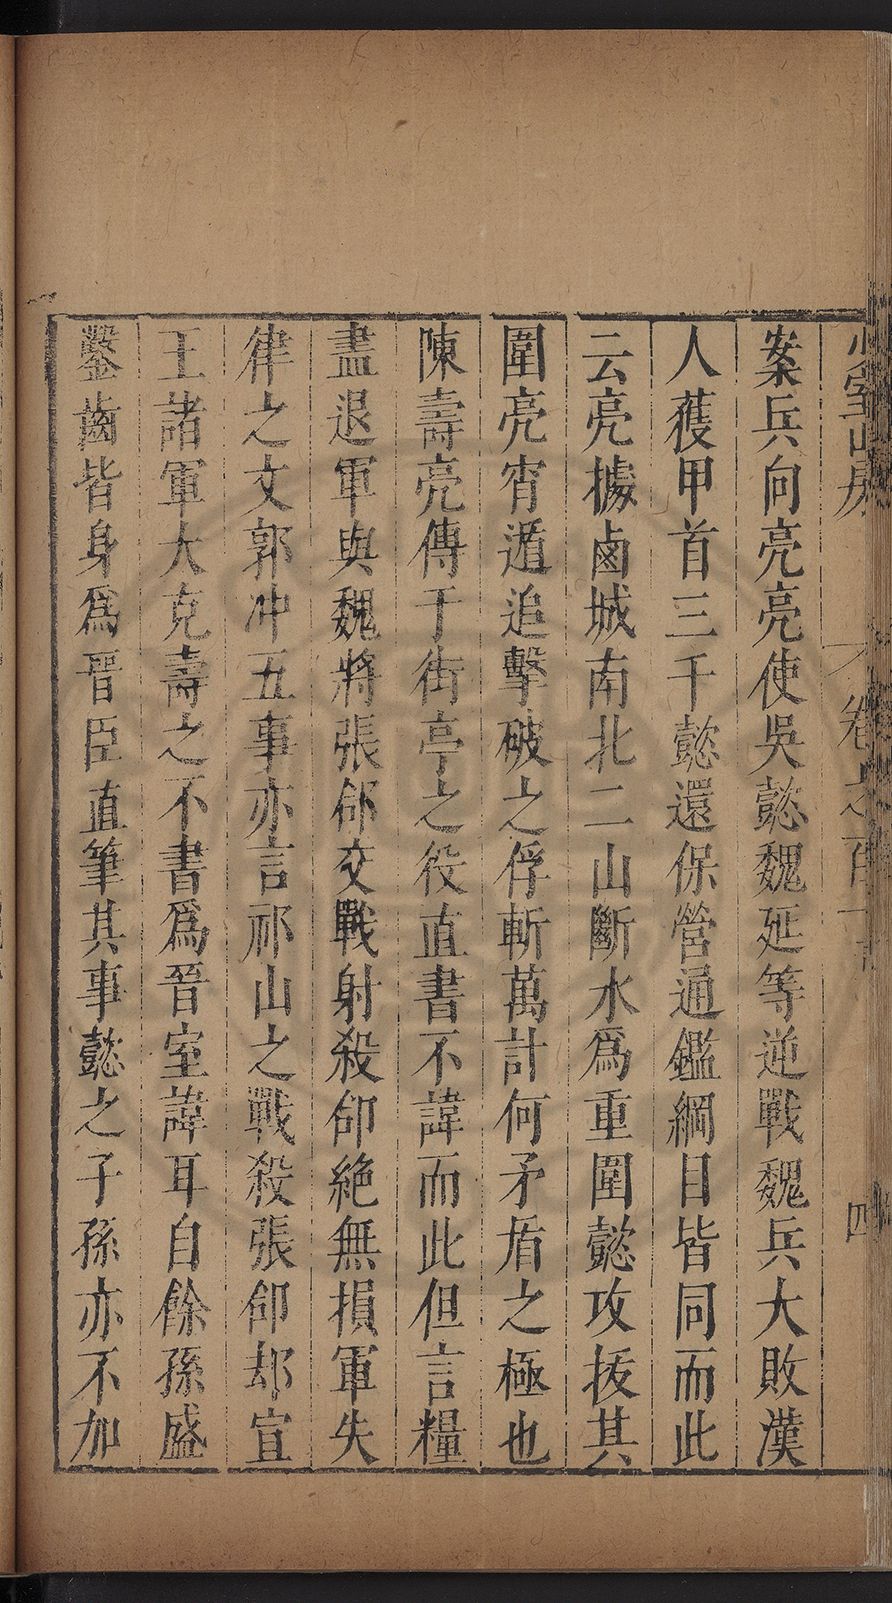 案兵向亮亮使吳懿魏延等逆戰魏兵大敗漢
人獲甲首三千懿還保營通鑑綱目皆同而此
云亮據鹵城南北二山斷水爲重圍懿攻拔其
圍亮宵遁追擊破之俘斬萬計何矛盾之極也
陳壽亮傳于街亭之役直書不諱而此但言糧
盡退軍與魏將張郃交戰射殺郃絶無損軍失
律之文郭冲五事亦言祁山之戰殺張郃却宣
王諸軍大克壽之不書爲晉室諱耳自餘孫盛
鑿齒皆身爲晉臣直筆其事懿之子孫亦不加
山房
卷之百
四